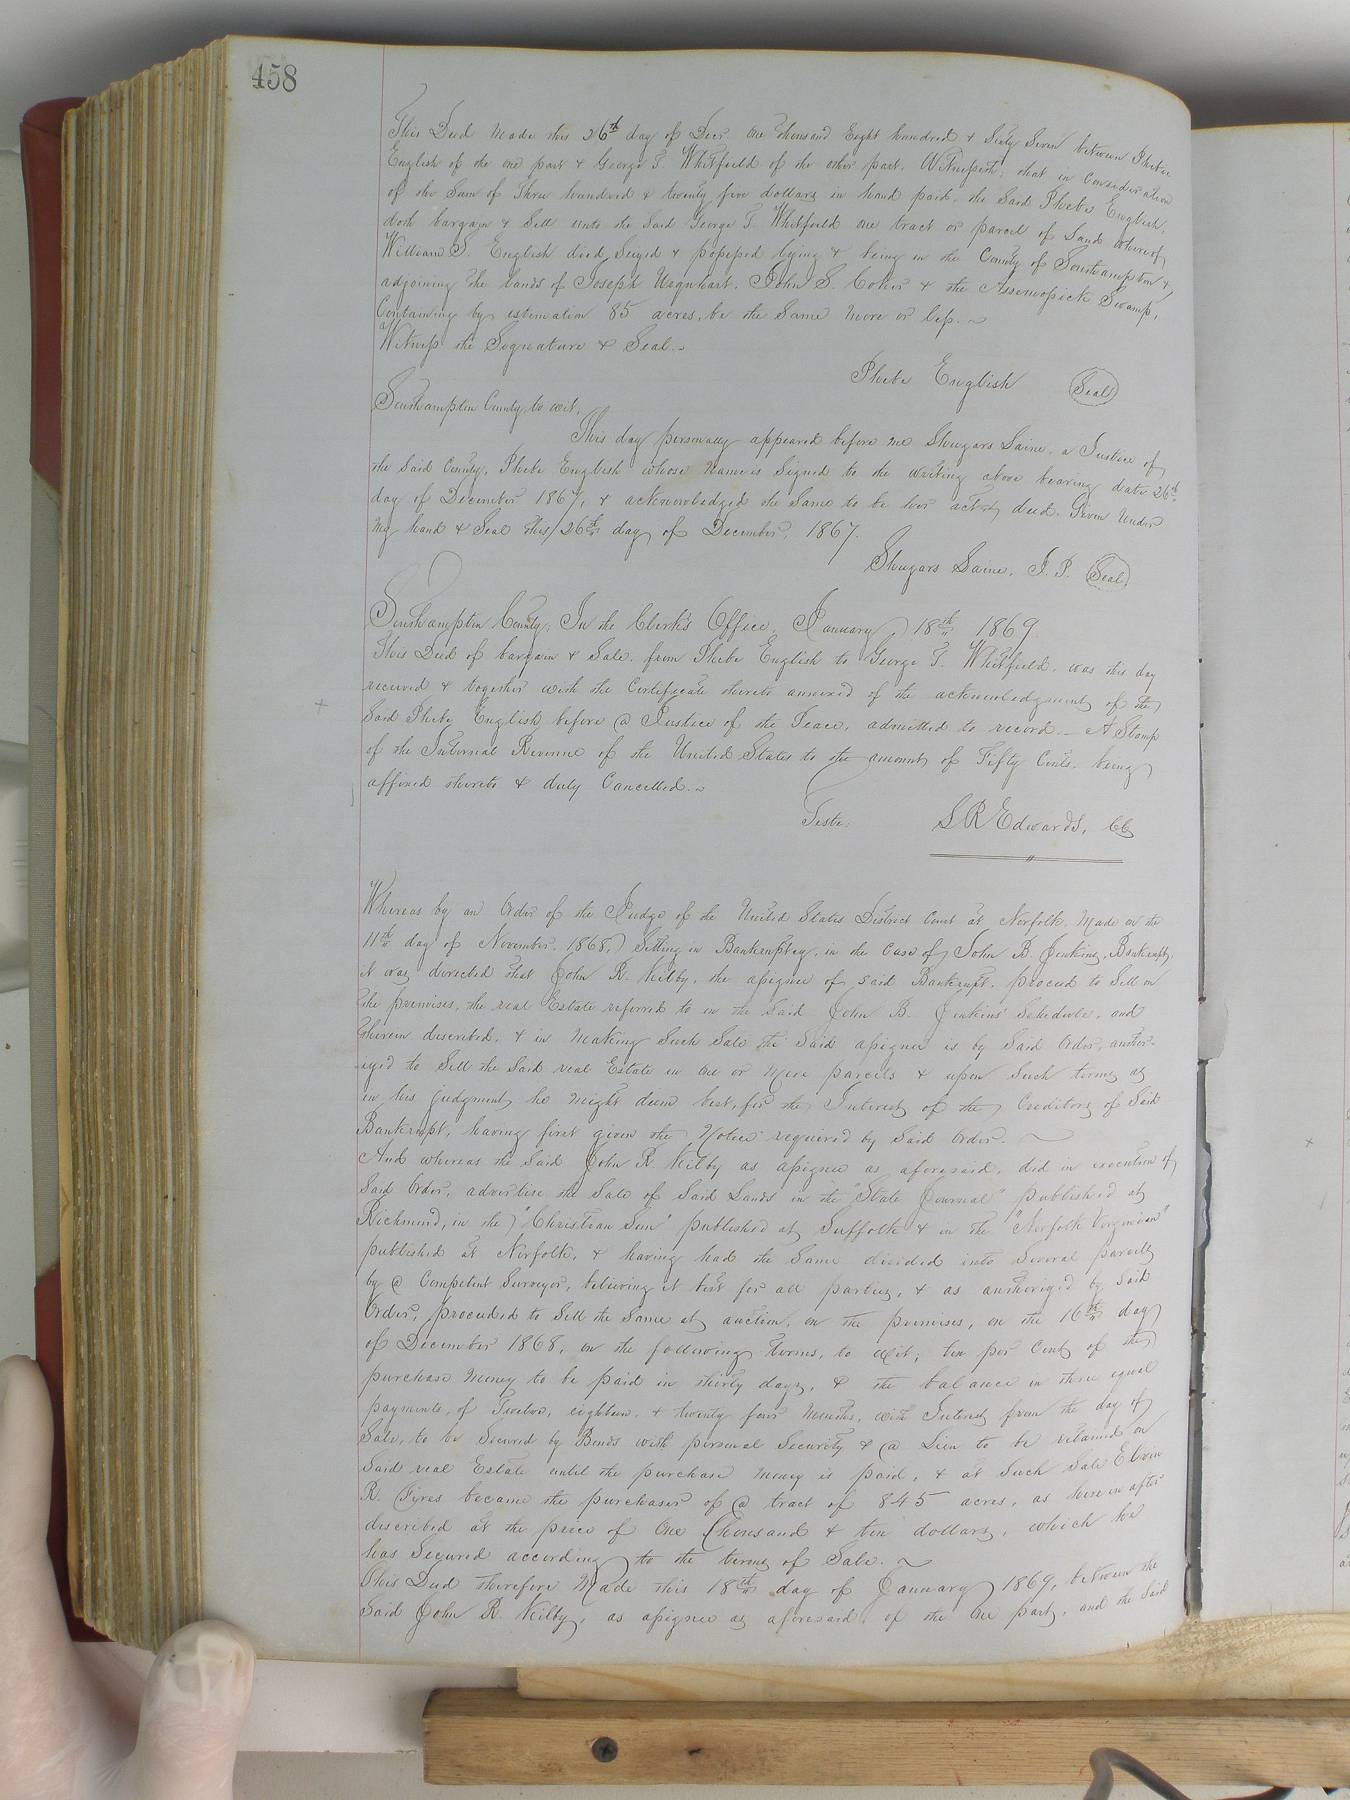 458
This Deed Made this 26th day of Decr. One Thousand Eight hundred & Sixty Seven between Phebe
English of the one part & George T. Whitfield of the other part. Witnesseth: that in Consideration
of the Sum of Three hundred & twenty five dollars in hand paid, the Said Phebe English,
doth bargain & Sell unto the Said George T. Whitfield one tract or parcel of Land whereof
William S. English died Seized & possessed lying & being in the County of Southampton &
adjoining the lands of Joseph Urquhart, John S. Coker & the Assamoosick Swamp,
Containing by estimation 85 acres, be the Same More or less.~
Witness the Signature & Seal.~
Phebe English (Seal)
Southampton County, to wit,
This day personally appeared before me Shugars Laine, a Justice of
the Said County, Phebe English whose Name is Signed to the writing above bearing date 26th
day of December 1867, & acknowledged the Same to be her act & deed. Given Under
My hand & Seal this 26th day of December, 1867.
Shugars Laine, J.P. (Seal)
Southampton County, In the Clerk's Office, January 18th 1869
This Deed of bargain & Sale, from Phebe English to George T. Whitfield, was this day
received & together with the Certificate thereto annexed of the acknowledgment of the
Said Phebe English before a Justice of the Peace, admitted to record.— A Stamp
of the Internal Revenue of the United States to the amount of Fifty Cents, being
affixed thereto & duly Cancelled.~
Teste: L R Edwards, CC
Whereas by an Order of the Judge of the United States District Court at Norfolk, Made on the
11th day of November, 1868, Sitting in Bankruptcy, in the Case of John B. Jenkins, Bankrupt,
it was directed that John R. Kilby, the assignee of said Bankrupt, proceed to Sell on
the premises, the real Estate referred to in the Said John B. Jenkins' Schedule, and
therein described, & in Making Such Sale the Said assignee is by Said Order, author-
ized to Sell the Said real Estate in One or More parcels & upon Such terms as
in his judgment he Might deem best, for the Interest of the Creditors of Said
Bankrupt, having first given the Notice required by Said Order. ~
And whereas the Said John R. Kilby as assignee as aforesaid, did in execution of
Said Order, advertise the Sale of Said Lands in the "State Journal" published at
Richmond, in the "Christian Sun" published at Suffolk & in the "Norfolk Virginian"
published at Norfolk, & having had the Same divided into Several parcels
by a Competent Surveyor, believing it best for all parties, & as authorized by Said
Order, proceeded to Sell the Same at auction, on the premises, on the 16th day
of December 1868, on the following terms, to wit; ten per Cent of the
purchase Money to be paid in thirty days, & the balance in three equal
payments, of Twelve, eighteen, & twenty four Months, with Interest from the day of
Sale, to be Secured by Bonds with personal Security & a Lien to be retained on
Said real Estate until the purchase Money is paid, & at Such Sale Elvin
R. Fyres became the purchaser of a tract of 845 acres, as herein after
described at the price of One Thousand & ten dollars, which he
has Secured according to the terms of Sale. ~
This Deed therefore Made this 18th day of January 1869, between the
Said John R. Kilby, as assignee as aforesaid, of the One part, and the Said